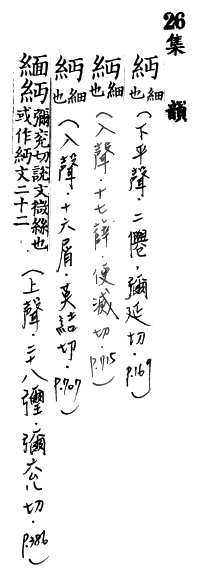 26集韻
䊴細也（下平聲．二僊．彌延切．p.169）
䊴細也（入聲．十七薛．便滅切．p.715）
䊴細也（入聲．十六屑．莫結切．p.707）
緬䊴彌兖切說文微絲也或作䊴文二十二（上聲．二十八獮．彌兖切．p.386）